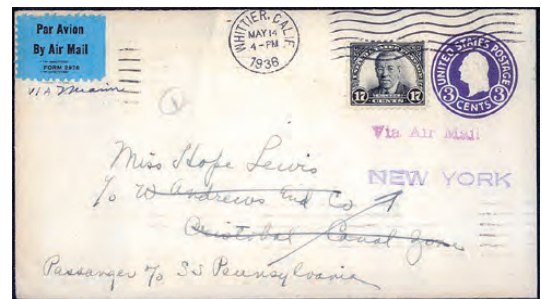 Par Avion
By Air Mail
FORM 2978
VIA Miami
WHITTIER, CALIF.
MAY 14
4-PM
1938
17
CENTS
17
UNITED STATES POSTAGE
3 CENTS 3
Via Air Mail
NEW YORK
Miss Hope Lewis
c/o W Andrews and Co
Cristobal Canal Zone
Passanger c/o SS Pennsylvania